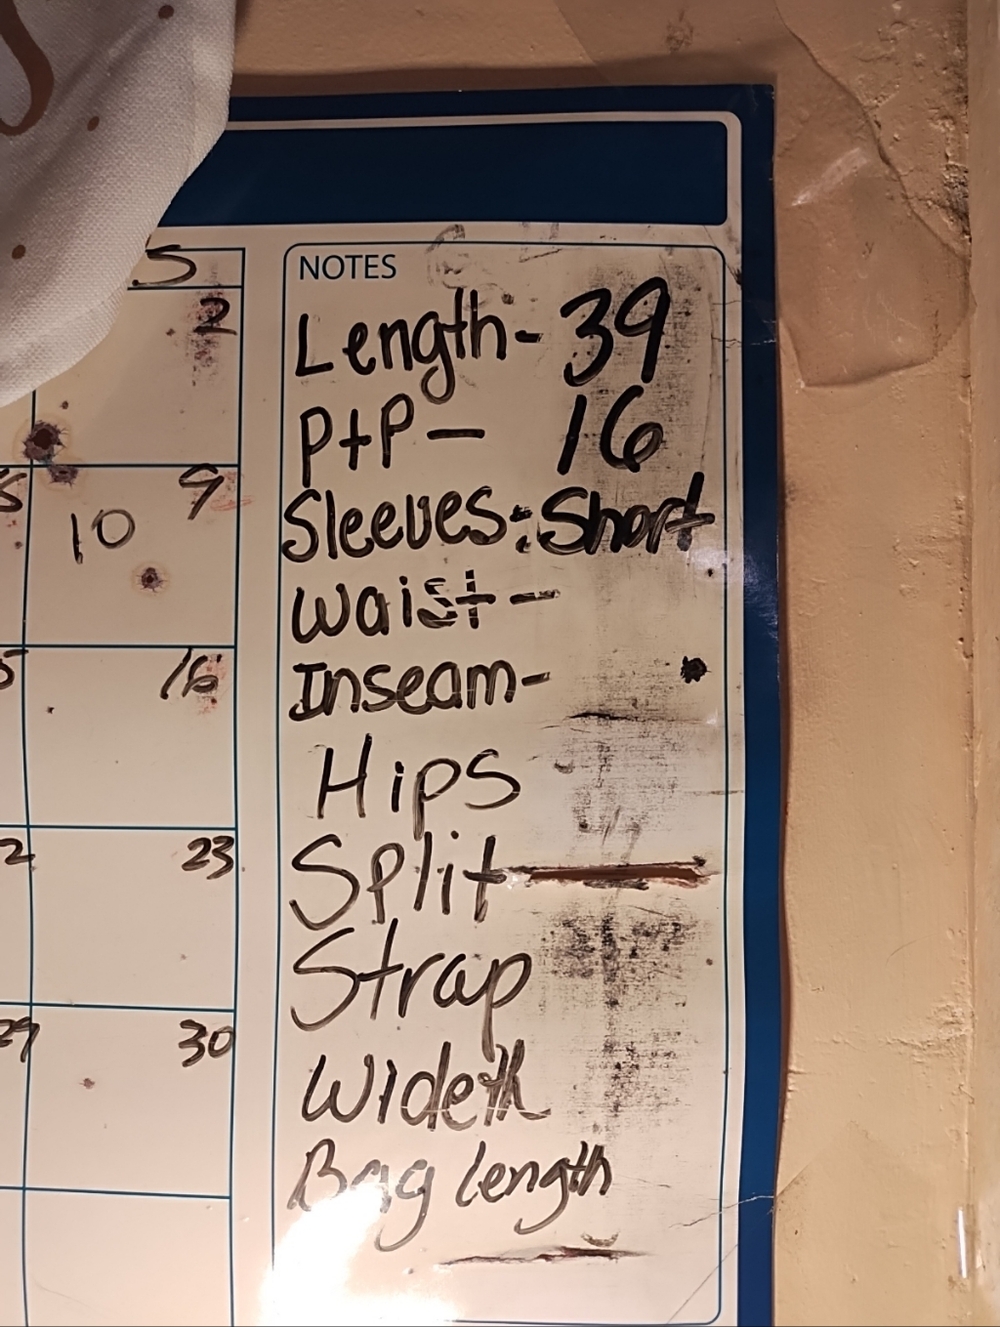 S
NOTES
2
Length- 39
PtP- 16
9
10
Sleeves: Short
Waist-
16
Inseam-
Hips
23
Split
Strap
30
Wideth
Bag length